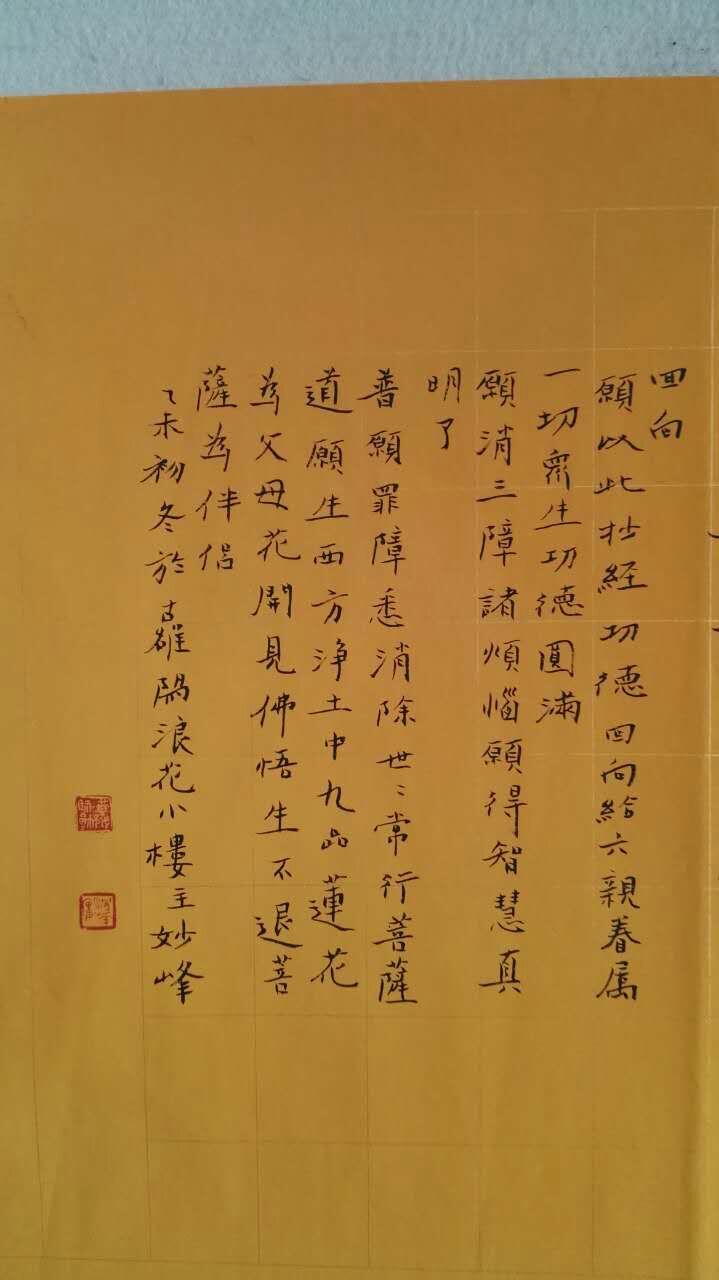 回向
願以此抄經功德回向給六親眷属
一切衆生功德圓滿
願消三障諸煩惱願得智慧真
明了
普願罪障悉消除世〻常行菩薩
道願生西方浄土中九品蓮花
為父母花開見佛悟生不退菩
薩為伴侣
乙未初冬於 隝浪花小樓主妙峰